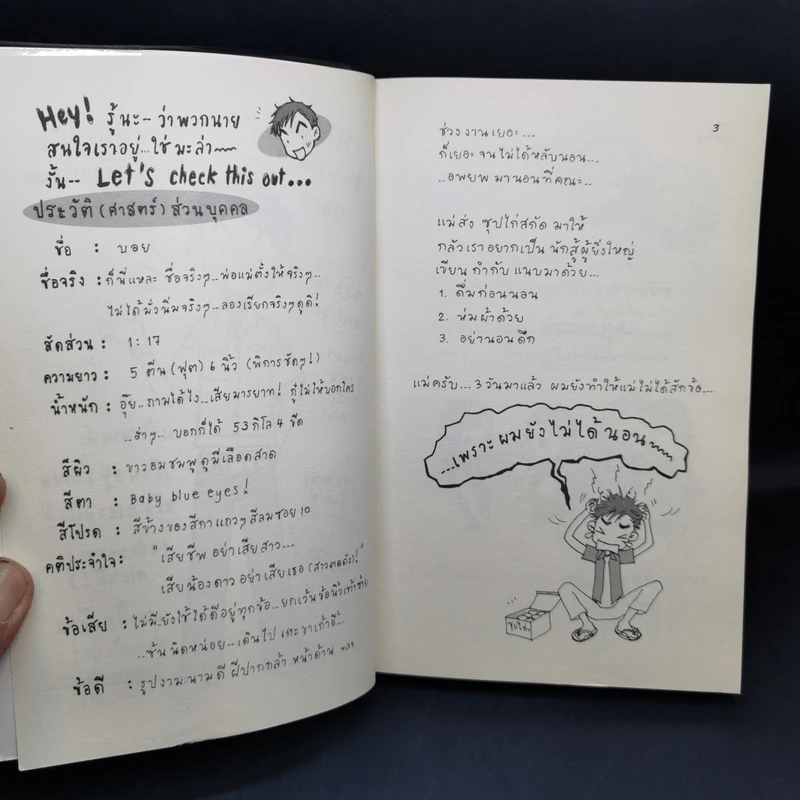 Hey! รู้นะ-- ว่าพวกนาย
สนใจเราอยู่...ใช่มะล่า~~
งั้น-- Let's check this out...
ประวัติ (ศาสตร์) ส่วนบุคคล
ชื่อ : บอย
ชื่อจริง : ก็นี่แหละ ชื่อจริงๆ...พ่อแม่ตั้งให้จริงๆ..
ไม่ได้มั่วนิ่มจริงๆ...ลองเรียกจริงๆดูดิ!
สัดส่วน : 1:17
ความยาว : 5 ตีน (ฟุต) 6 นิ้ว (พิการชัดๆ!)
น้ำหนัก : อุ๊ย...ถามได้ไง...เสียมารยาท! กูไม่ให้บอกใคร
...ฮ่าๆ... บอกก็ได้ 53 กิโล 4 ขีด
สีผิว : ขาวอมชมพู ดูมีเลือดสาด
สีตา : Baby blue eyes!
สีโปรด : สีข้างของสีกา แถวๆ สีลมซอย 10
คติประจำใจ : "เสียชีพ อย่าเสียสาว...
เสียน้องดาว อย่าเสียเธอ
ข้อเสีย : ไม่มี..ยังใช้ได้ดีอยู่ทุกข้อ...ยกเว้นข้อนิ้วเท้าซ้าย
...ซ้นนิดหน่อย...เดินไป เตะขาเก้าอี้..
ข้อดี : รูปงาม นามดี ฝีปากกล้า หน้าด้าน ฯลฯ
3
ช่วงงานเยอะ...
ก็เยอะจนไม่ได้หลับนอน...
..อพยพ มานอนที่คณะ..
แม่ส่ง ซุปไก่สกัด มาให้
กลัวเราอยากเป็น นักสู้ผู้ยิ่งใหญ่
เขียน กำกับ แนบมาด้วย...
1. ดื่มก่อนนอน
2. ห่มผ้าด้วย
3. อย่านอนดึก
แม่ครับ... 3 วันมาแล้ว ผมยังทำให้แม่ไม่ได้สักข้อ...
...เพราะผมยังไม่ได้นอน~~